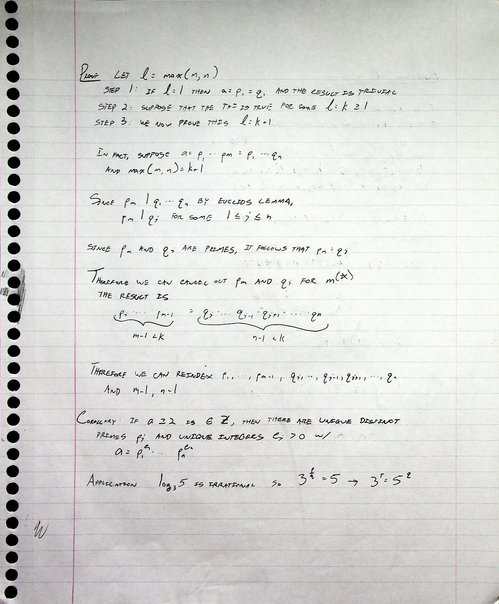 PROOF: LET l = max(m,n)
STEP 1: IF l=1 THEN a=p₁=q₁ AND THE RESULT IS TRIVIAL
STEP 2: SUPPOSE THAT THE IS TRUE FOR SOME l=k≥1
STEP 3: WE NOW PROVE THIS l=k+1
IN FACT, SUPPOSE a=p₁ ... pm = q₁ ... qn
AND max(m,n)=k+1
SINCE pm | q₁ ... qn BY EUCLIDS LEMMA,
pm | qj FOR SOME 1≤j≤n
SINCE pm AND qj ARE PRIMES, IT FOLLOWS THAT pm=qj
THEREFORE WE CAN CANCEL OUT pm AND qj FOR
THE RESULT IS
p₁ ... pm-1 = q₁ ... qj-1 · qj+1 ... qn
m-1≤k n-1≤k
THEREFORE WE CAN REINDEX p₁, ..., pm-1, q₁, ..., qj-1, qj+1, ..., qn
AND m-1, n-1
COROLLARY: IF a≥2 IS ∈ Z, THEN THERE ARE UNIQUE DISTINCT
PRIMES pj AND UNIQUE INTEGERS ej >0 w/
a = p₁^e₁ ... pn^en
APPLICATION log₃5 IS IRRATIONAL SO 3^(r/q) = 5 → 3^r = 5^q